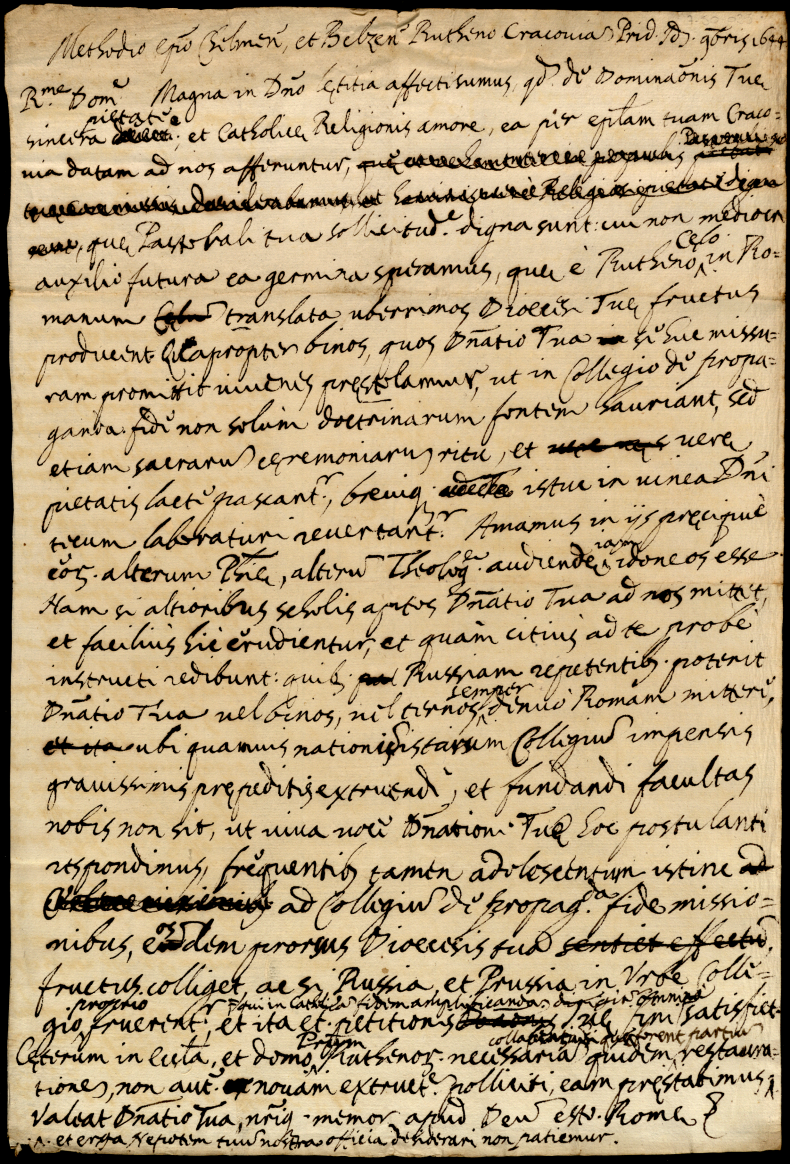 Methodio epo Chelmen, et Belzen Rutheno Cracouia Prid. Id. 9bris 1644
Rme Dome Magna in Dno lętitia affecti sumus, qd de Dominaōnis Tuę
pietate
sincera et Catholicę Religionis amore, ea per eplam tuam Craco-
uia datam ad nos afferuntur,
quę Pastorali tua sollicitude digna sunt: cui non mediocri
Cęlo
auxilio futura ea germina speramus, quę è Rutheno in Ro-
manum translata uberrimos Diœcesi Tuę fructus
producent. Quapropter binos, quos Dnatio Tua se huc missu-
ram promittit iuuenes pręstolamur, ut in Collegio de propa-
ganda fide non solum doctrinarum fontem hauriant, sed
etiam sacraru cęremoniaru ritu, et uerę
pietatis lacte pascantr, breuiq istuc in uinea Dni
tecum laboraturi reuertantr. Amamus in ijs pręcipuè
iam
eos alterum Phię, alteru Theologę audiendę idoneos esse
Nam si altioribus scholis aptos Dnatio Tua ad nos mittet,
et facilius hic erudientur, et quàm citius ad te probè
instructi redibunt: quib Russiam repetentib poterit
semper
Dnatio Tua uel binos, uel ternos denuo Romam mittere,
ubi quamuis nationis istarum Collegiu impensis
grauissimis prępeditis extruendi, et fundandi facultas
nobis non sit, ut uiua uoce Dnationi Tuę hoc postulanti
respondimus, frequentib tamen adolescentum istinc
ad Collegiu de propagda fide missio-
nibus, eosdem prorsus Diœcesis tua
fructus colliget, ac si Russia, et Prussia in Urbe Colle-
proprio
gio fruerentr, et ita et petitionis satisfiet
Cęterum in eccla, et domo Ruthenor necessaria quidem restaura-
tione, non aut nouam extruere polliciti, eam pręstabimus
Valeat Dnatio Tua, nriq memor apud Deu esto. Romę
et erga Nepotem tuu nostra officia desiderari non patiemur.